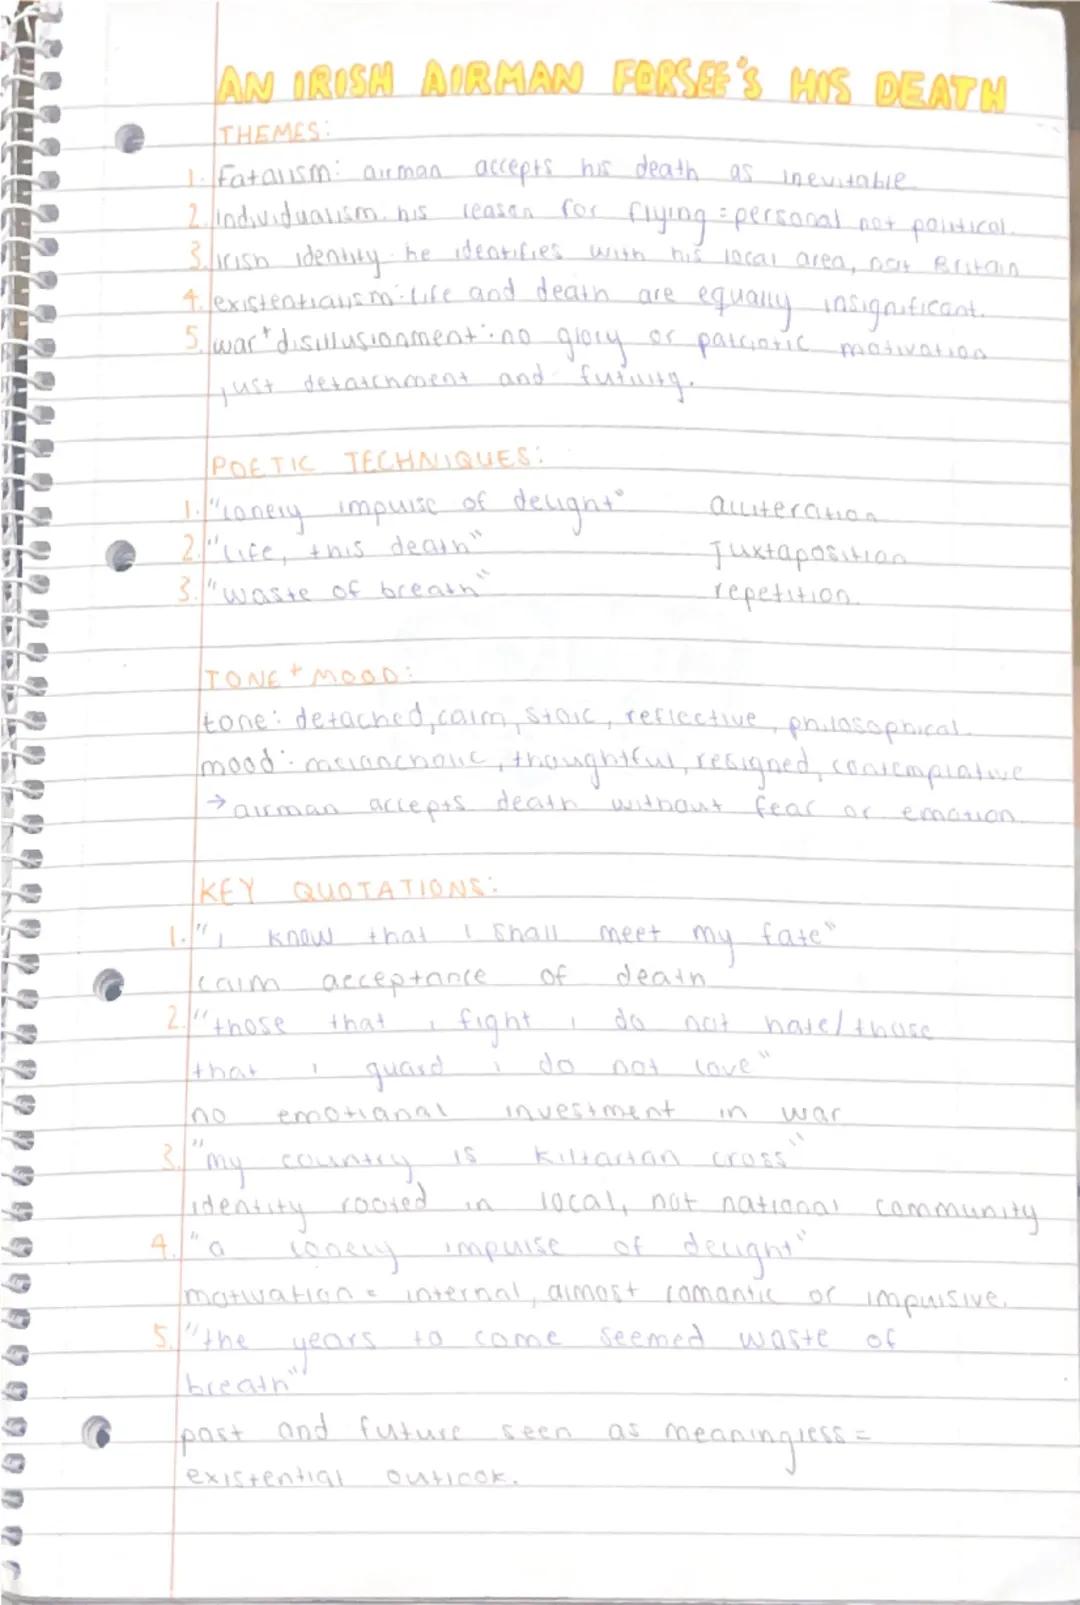 AN IRISH AIRMAN FORSEE'S HIS DEATH
THEMES:
1. Fatalism: airman accepts his death as inevitable
2. individualism: his reason for flying = personal not political.
3. irish identity: he identifies with his local area, not Britain
4. existentialism: life and death are equally insignificant.
5. war + disillusionment: no glory or patriotic motivation
, just detatchment and futility.
POETIC TECHNIQUES:
1. "lonely impulse of delight" alliteration
2. "life, this death" Juxtaposition
3. "waste of breath" repetition.
TONE + MOOD:
tone: detached, calm, stoic, reflective, philosophical.
mood: melancholic, thoughtful, resigned, contemplative
→ airman accepts death without fear or emotion.
KEY QUOTATIONS:
1. "i know that i shall meet my fate"
calm acceptance of death
2. "those that i fight i do not hate/ those
that i guard i do not love"
no emotional investment in war
3. "my country is kiltartan cross"
identity rooted in local, not national community
4. "a lonely impulse of delight"
motivation = internal, almost romantic or impulsive.
5. "the years to come seemed waste of
breath"
past and future seen as meaningless =
existential outlook.